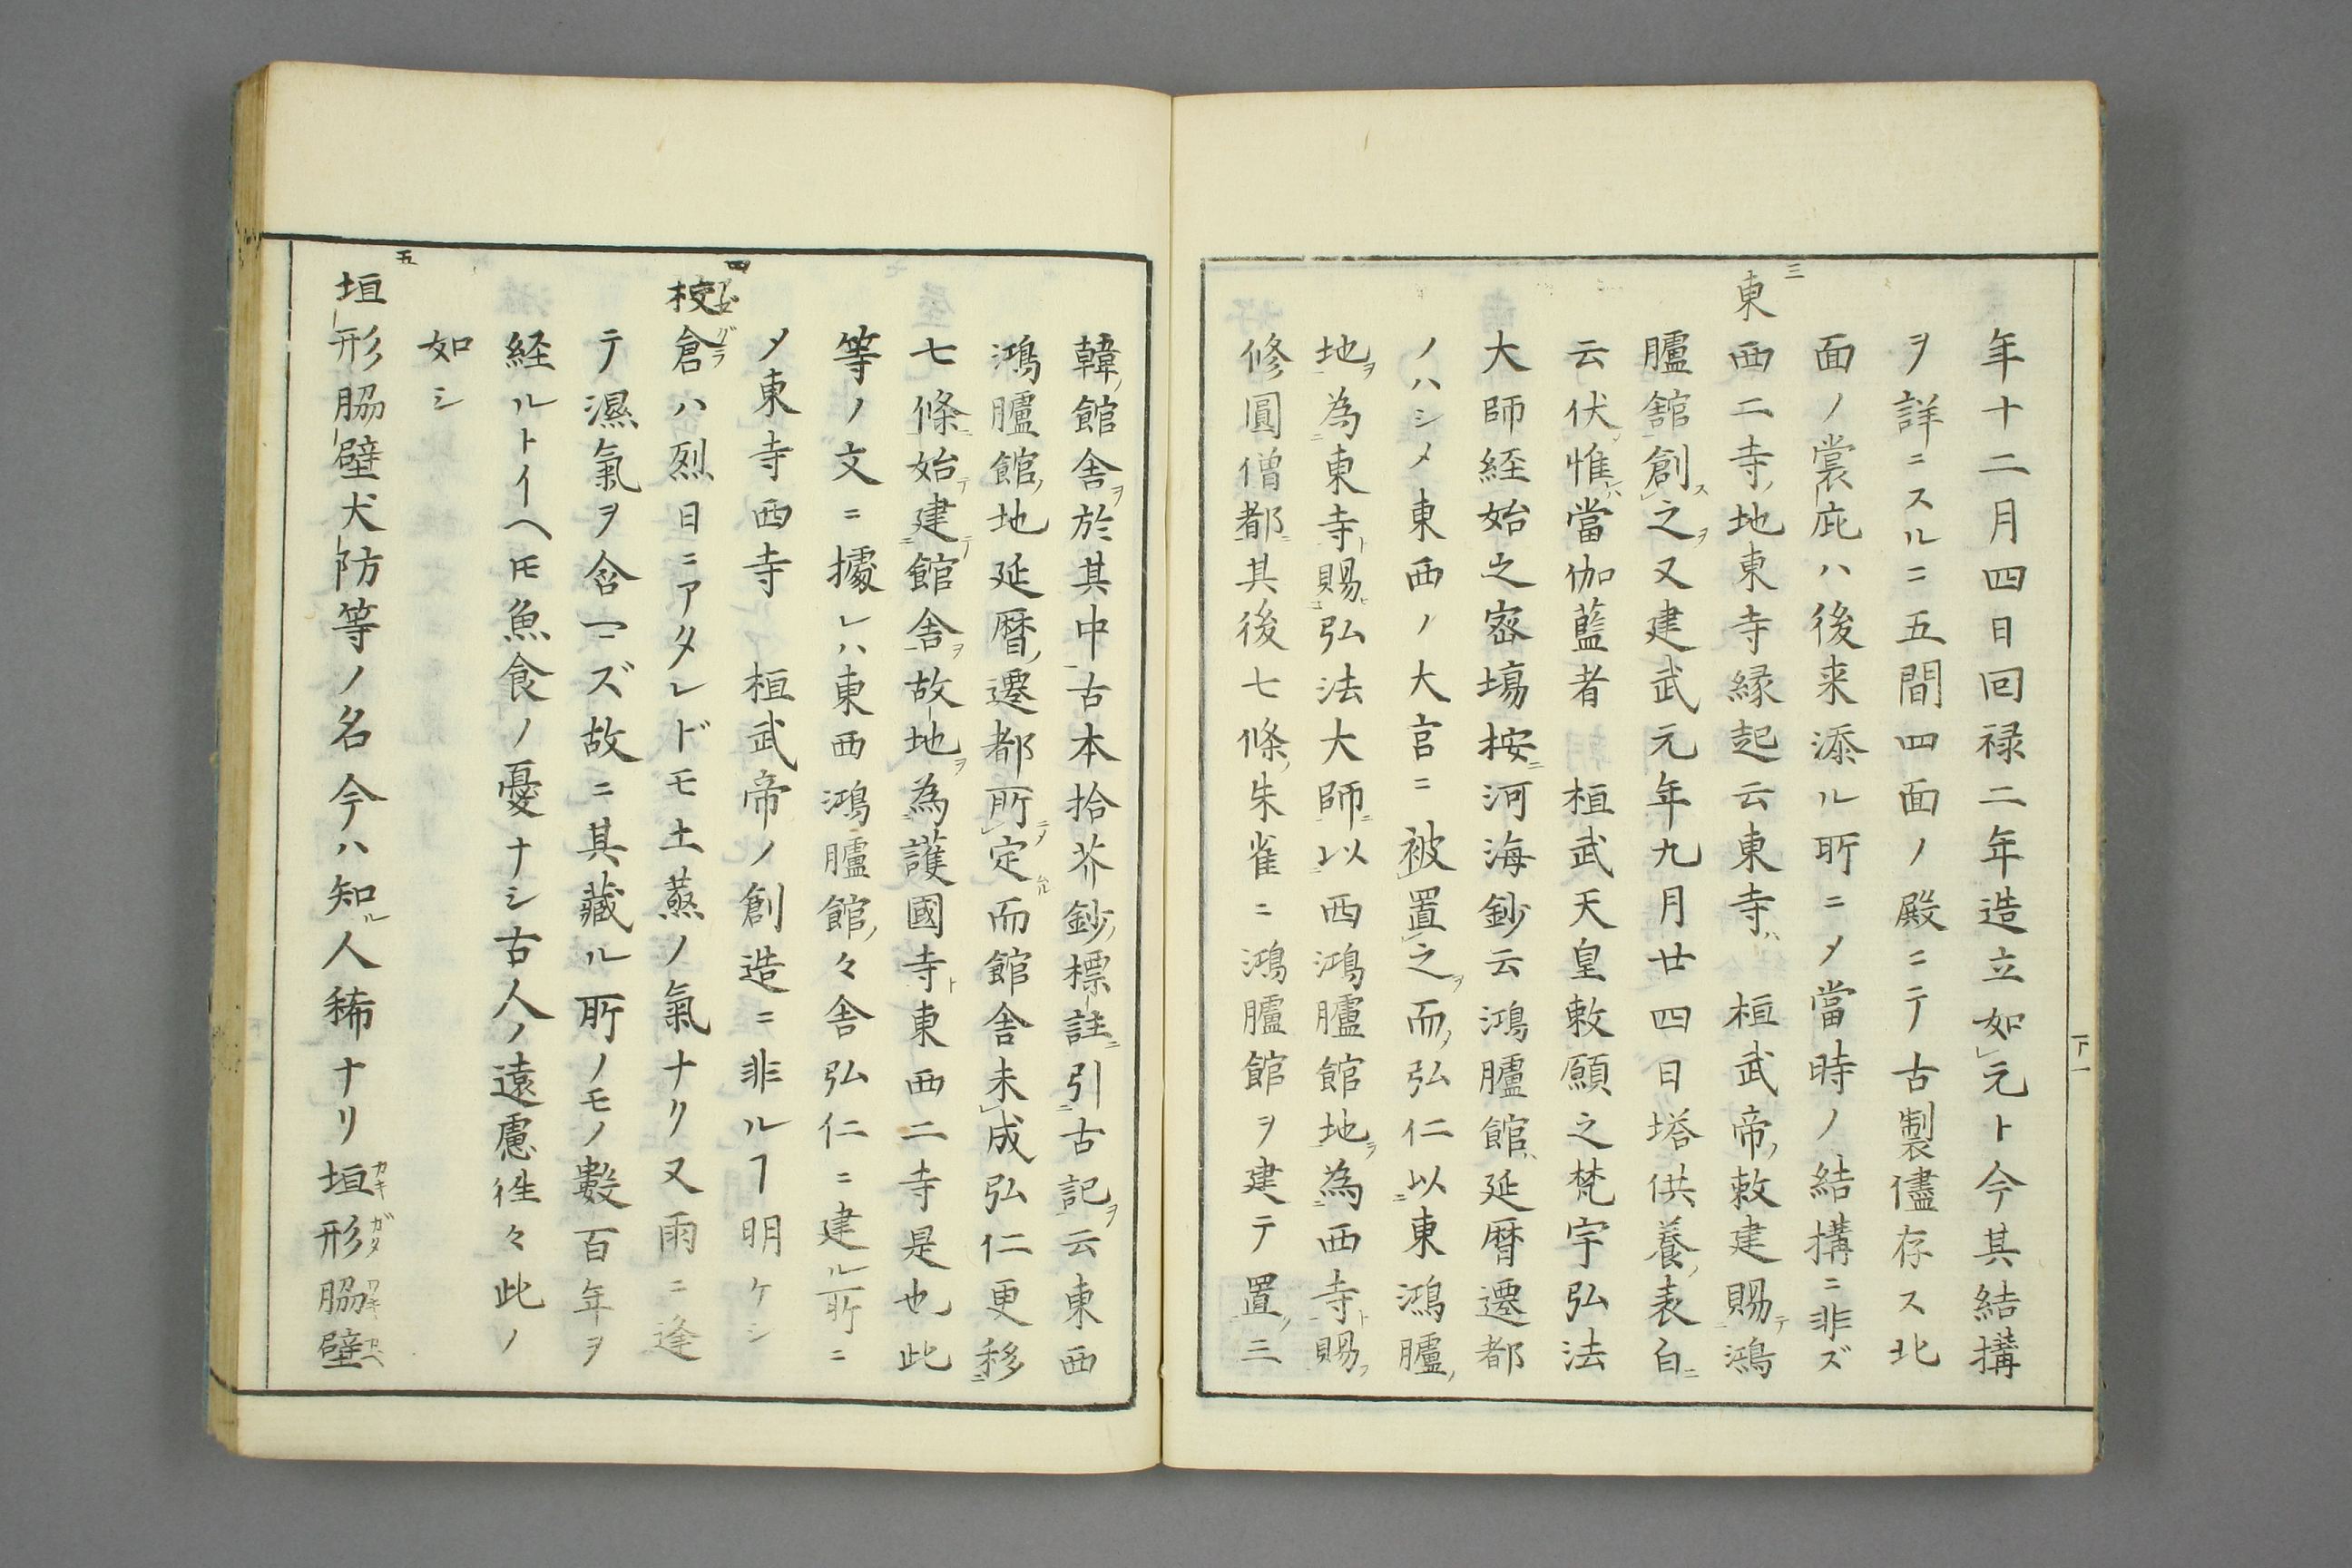 年十二月四日回禄二年造立如元ト今其結搆
ヲ詳ニスルニ五間四面ノ殿ニテ古製儘存ス北
面ノ裳庇ハ後来添ル所ニメ當時ノ結搆ニ非ズ
三
東西二寺地東寺縁起云東寺ハ桓武帝敕建賜テ鴻
臚舘創ス之ヲ又建武元年九月廿四日塔供養表白ニ
云伏惟ハ當伽藍者桓武天皇敕願之梵宇弘法
大師経始之密場按ニ河海鈔云鴻臚館延暦遷都
ノハシメ東西ノ大宮ニ被置之ヲ而弘仁以東鴻臚
地ヲ為東寺ト賜弘法大師ニ以西鴻臚館地ヲ為西寺ト賜フ
修圓僧都ニ其後七條朱雀ニ鴻臚館ヲ建テ置三
下一
韓館舎ヲ於其中古本拾芥鈔標註ニ引古記ヲ云東西
鴻臚館地延暦遷都所定而館舎未成弘仁更移
七條ニ始テ建テ館舎ヲ故地ヲ為護國寺ト東西二寺是也此
等ノ文ニ據レハ東西鴻臚館々舎弘仁ニ建ル所ニ
メ東寺西寺桓武帝ノ創造ニ非ルヿ明ケシ
四
校倉ハ烈日ニアタレドモ土蒸ノ氣ナク又雨ニ逢
テ濕氣ヲ含マズ故ニ其藏ル所ノモノ數百年ヲ
経ルトイヘ𪜈魚食ノ憂ナシ古人ノ遠慮徃々此ノ
如シ
五
垣形脇壁犬防等ノ名今ハ知ル人稀ナリ垣カキ形ガタ脇ワキ壁カベ